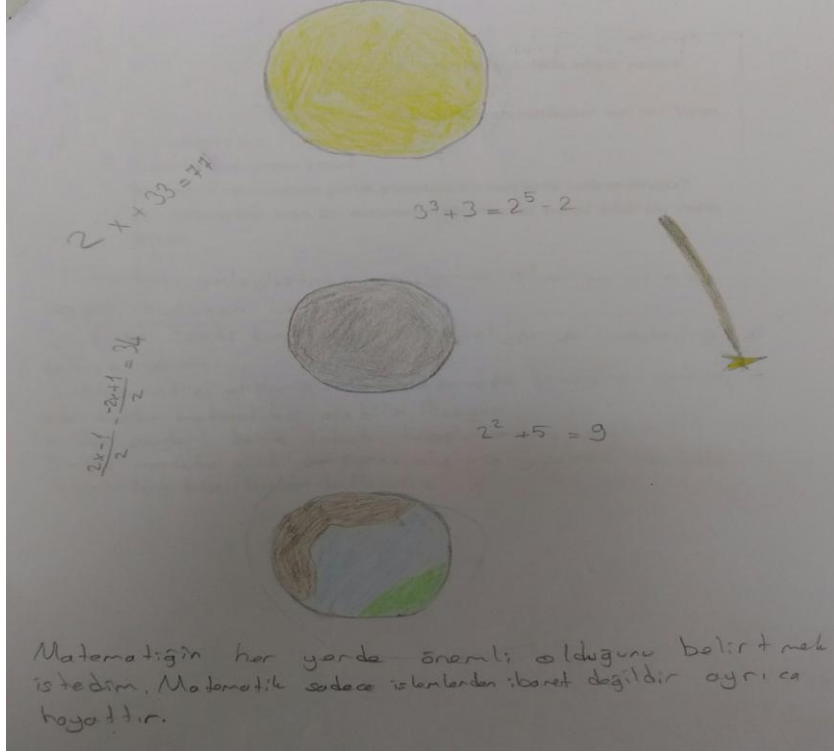 2x+33=77
3³+3=2⁵-2
(2x-1)/2 - (-2x+1)/2 = 34
2² +5 = 9
Matematiğin her yerde önemli olduğunu belirtmek
istedim. Matematik sadece işlemlerden ibaret değildir ayrıca
hayattır.